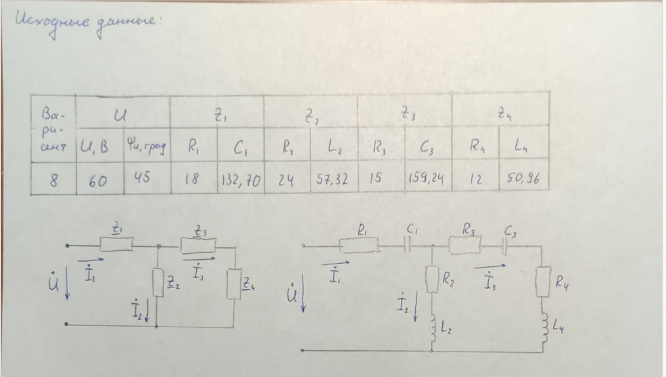 Исходные данные:
Ва-
ри-
ант
U
Z1
Z2
Z3
Z4
U, В
Ψu, град
R1
C1
R2
L2
R3
C3
R4
L4
8
60
45
18
132,70
24
57,32
15
159,24
12
50,96
Z1
Z3
R1
C1
R3
C3
İ1
İ3
İ1
İ3
U̇
Z2
Z4
U̇
R2
R4
İ2
İ2
L2
L4